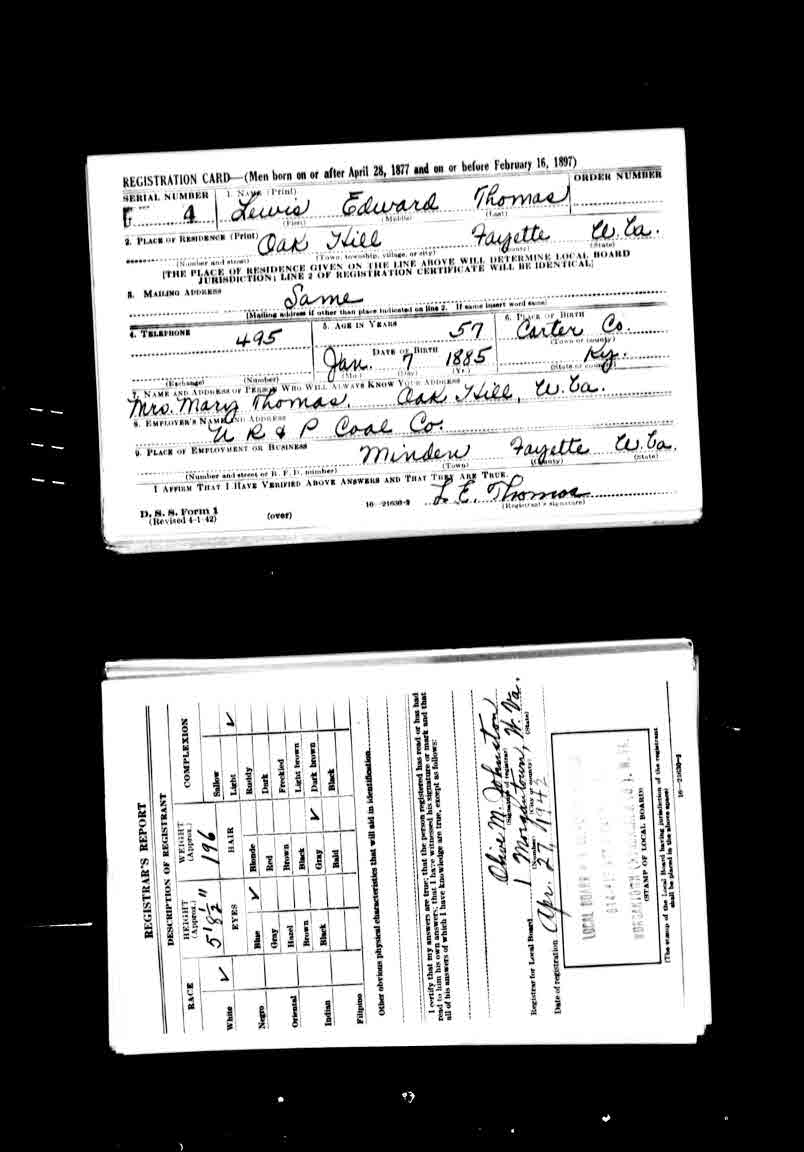 REGISTRATION CARD—(Men born on or after April 28, 1877 and on or before February 16, 1897)
SERIAL NUMBER 1. NAME (Print) ORDER NUMBER
4 Lewis Edward Thomas
(First) (Middle) (Last)
2. PLACE OF RESIDENCE (Print)
Oak Hill Fayette W. Va.
(Number and street) (Town, township, village, or city) (County) (State)
[THE PLACE OF RESIDENCE GIVEN ON THE LINE ABOVE WILL DETERMINE LOCAL BOARD
JURISDICTION; LINE 2 OF REGISTRATION CERTIFICATE WILL BE IDENTICAL]
3. MAILING ADDRESS
Same
(Mailing address if other than place indicated on line 2. If same insert word same)
4. TELEPHONE 5. AGE IN YEARS 6. PLACE OF BIRTH
495 57 Carter Co.
(Town or county)
DATE OF BIRTH
Jan. 7 1885 Ky.
(Exchange) (Number) (Mo.) (Day) (Yr.) (State or country)
7. NAME AND ADDRESS OF PERSON WHO WILL ALWAYS KNOW YOUR ADDRESS
Mrs. Mary Thomas, Oak Hill, W. Va.
8. EMPLOYER'S NAME AND ADDRESS
N R & P Coal Co.
9. PLACE OF EMPLOYMENT OR BUSINESS
Minden Fayette W. Va.
(Number and street or R. F. D. number) (Town) (County) (State)
I AFFIRM THAT I HAVE VERIFIED ABOVE ANSWERS AND THAT THEY ARE TRUE.
L. E. Thomas
D. S. S. Form 1 16—21630-2 (Registrant's signature)
(Revised 4-1-42) (over)
REGISTRAR'S REPORT
DESCRIPTION OF REGISTRANT
RACE HEIGHT (Approx.) WEIGHT (Approx.) COMPLEXION
5' 8½" 196
EYES HAIR
White ✓ Sallow
Light ✓
Negro Blue ✓ Blonde Ruddy
Gray Red Dark
Oriental Hazel Brown Freckled
Brown Black Light brown
Indian Black Gray ✓ Dark brown
Bald Black
Filipino
Other obvious physical characteristics that will aid in identification
I certify that my answers are true; that the person registered has read or has had
read to him his own answers; that I have witnessed his signature or mark and that
all of his answers of which I have knowledge are true, except as follows:
Olive M. Johnston
(Signature of registrar)
Registrar for Local Board 1 Morgantown, W. Va.
(Number) (City or county) (State)
Date of registration Apr. 27, 1942
LOCAL BOARD
(STAMP OF LOCAL BOARD)
(The stamp of the Local Board having jurisdiction of the registrant
shall be placed in the above space)
16—21630-2